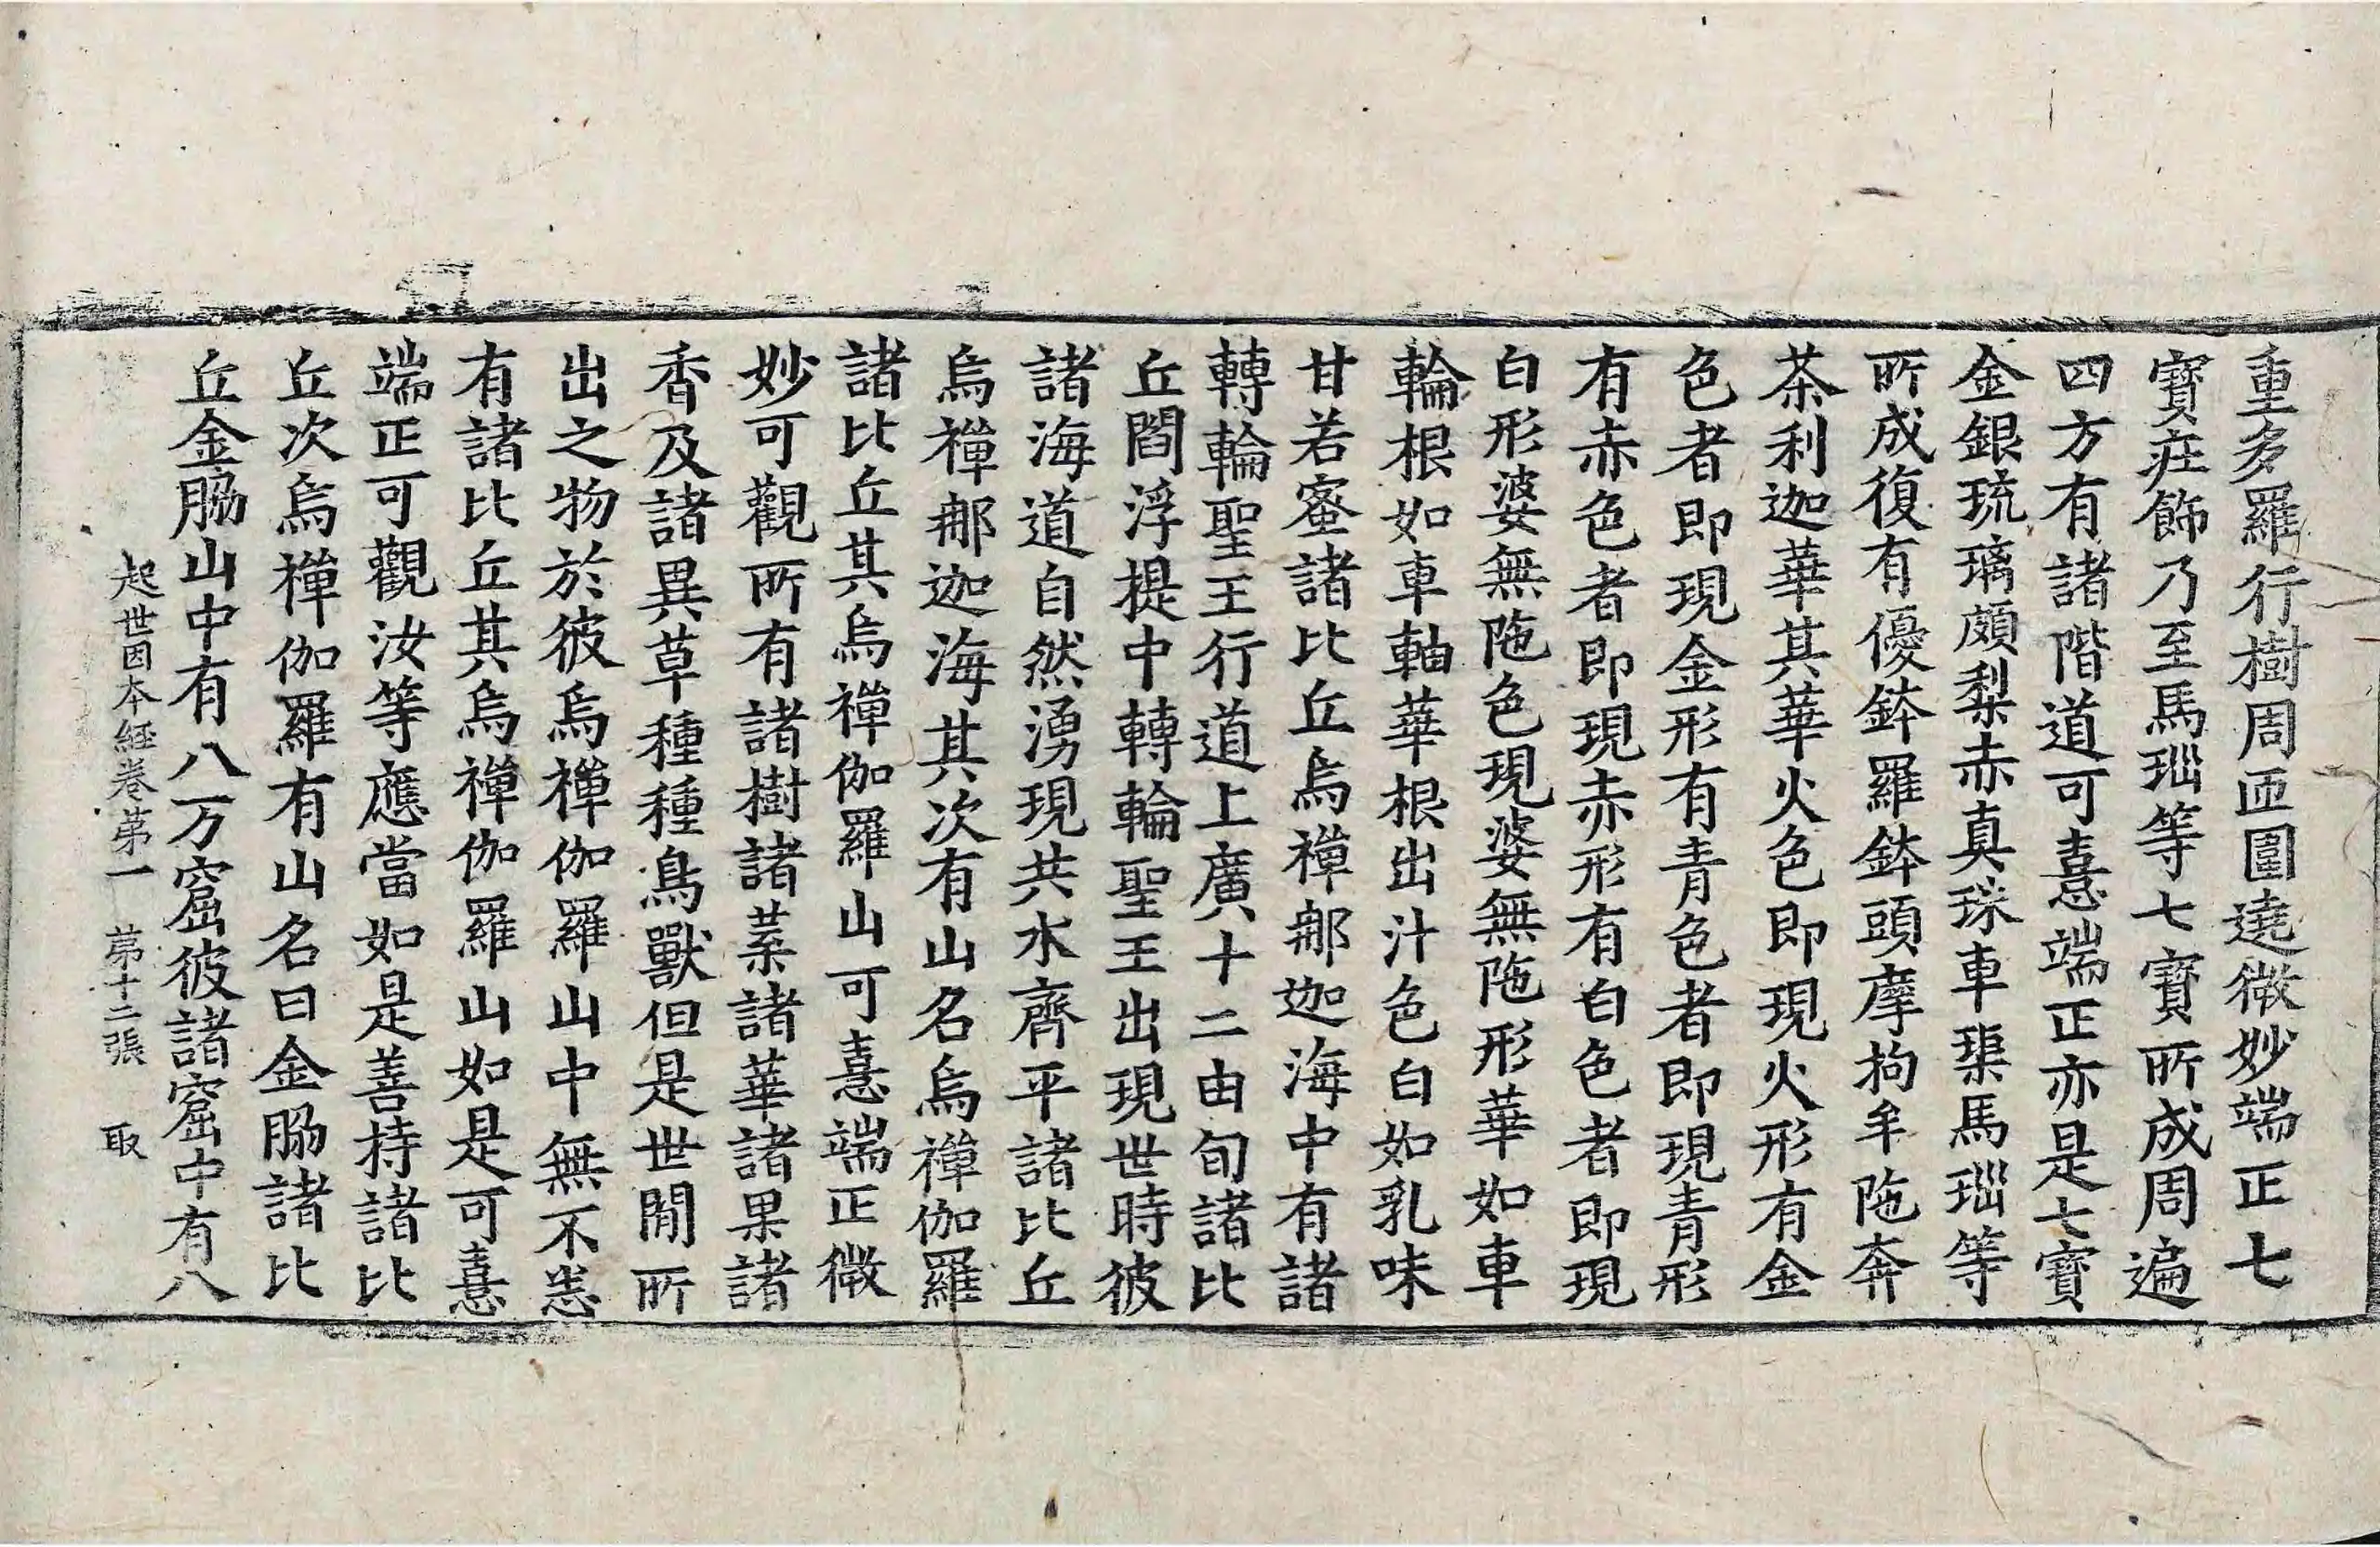 重多羅行樹周匝圍遶微妙端正七
寶庄飾乃至馬瑙等七寶所成周遍
四方有諸階道可憙端正亦是七寶
金銀琉璃頗梨赤真珠車璖馬瑙等
所成復有優鉢羅鉢頭摩拘牟陁奔
茶利迦華其華火色即現火形有金
色者即現金形有青色者即現青形
有赤色者即現赤形有白色者即現
白形婆無陁色現婆無陁形華如車
輪根如車軸華根出汁色白如乳味
甘若蜜諸比丘烏禪那迦海中有諸
轉輪聖王行道上廣十二由旬諸比
丘閻浮提中轉輪聖王出現世時彼
諸海道自然湧現共水齊平諸比丘
烏禪那迦海其次有山名烏禪伽羅
諸比丘其烏禪伽羅山可憙端正微
妙可觀所有諸樹諸葉諸華諸果諸
香及諸異草種種鳥獸但是世間所
出之物於彼烏禪伽羅山中無不悉
有諸比丘其烏禪伽羅山如是可憙
端正可觀汝等應當如是善持諸比
丘次烏禪伽羅有山名曰金脇諸比
丘金脇山中有八万窟彼諸窟中有八
起世因本経卷第一 第十二張 取